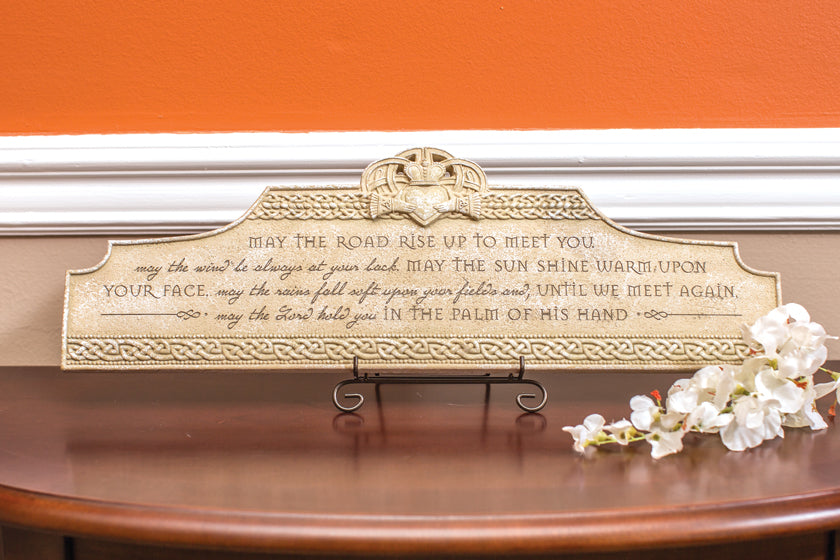 MAY THE ROAD RISE UP TO MEET YOU.
may the wind be always at your back. MAY THE SUN SHINE WARM UPON
YOUR FACE. may the rains fall soft upon your fields and, UNTIL WE MEET AGAIN,
may the Lord hold you IN THE PALM OF HIS HAND